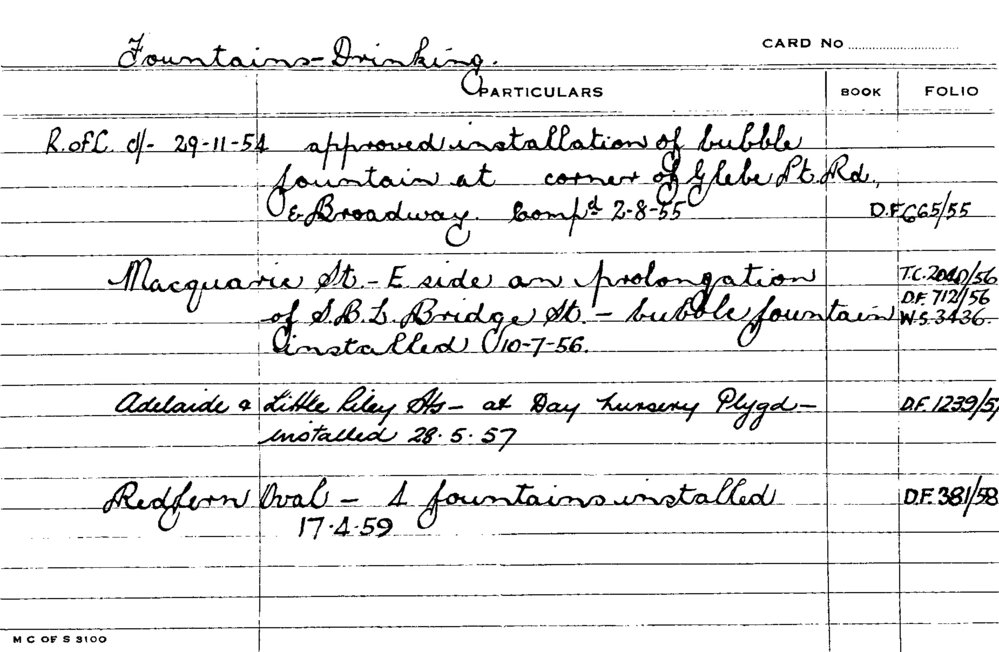 Fountains - Drinking.
CARD No
PARTICULARS BOOK FOLIO
R. of C. d/- 29-11-54 approved installation of bubble
fountain at corner of Glebe Pt. Rd.,
& Broadway. Compd 2-8-55 D.F. 665/55
Macquarie St. - E side on prolongation T.C. 2040/56
of S.B.L. Bridge St. - bubble fountain D.F. 712/56
installed 10-7-56. W.S. 3436.
Adelaide & Little Riley Sts - at Day Nursery Plygd - D.F. 1239/57
installed 28.5.57
Redfern Oval - fountains installed D.F. 381/58
17.4.59
M C OF S 3100